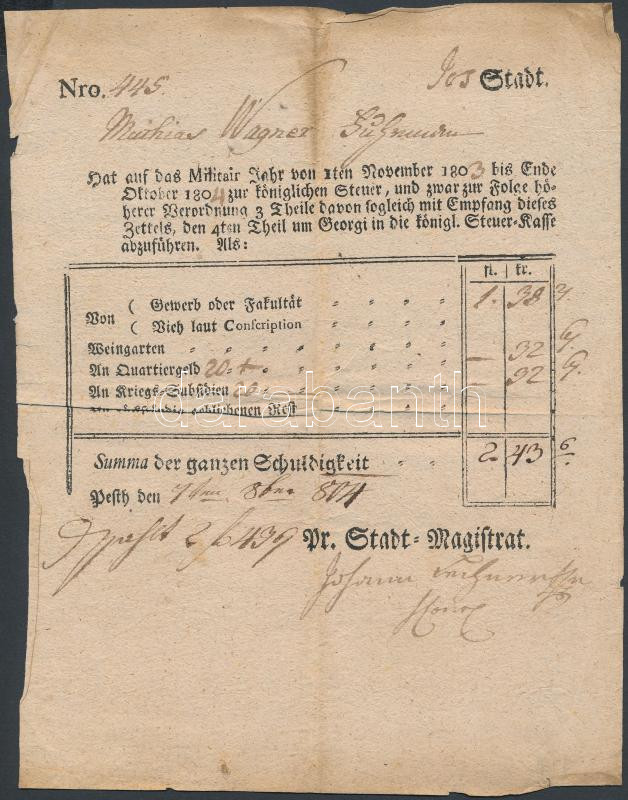 Nro. 445. Jos Stadt.
Mathias Wagner Fuhrmann
Hat auf das Militair Jahr von 1ten November 1803 bis Ende
Oktober 1804 zur königlichen Steuer, und zwar zur Folge hö-
herer Verordnung 3 Theile davon sogleich mit Empfang dieses
Zettels, den 4ten Theil um Georgi in die königl. Steuer-Kasse
abzuführen. Als:
fl. kr.
Von ( Gewerb oder Fakultät 1. 38
( Vieh laut Conscription
Weingarten
An Quartiergeld 20 — 32
An Kriegs-Subsidien 20 — 32
An rückständig gebliebenen Rest
Summa der ganzen Schuldigkeit 2. 43 6
Pesth den 7ten 8ber 804
Pr. Stadt-Magistrat.
Johann
darabanth